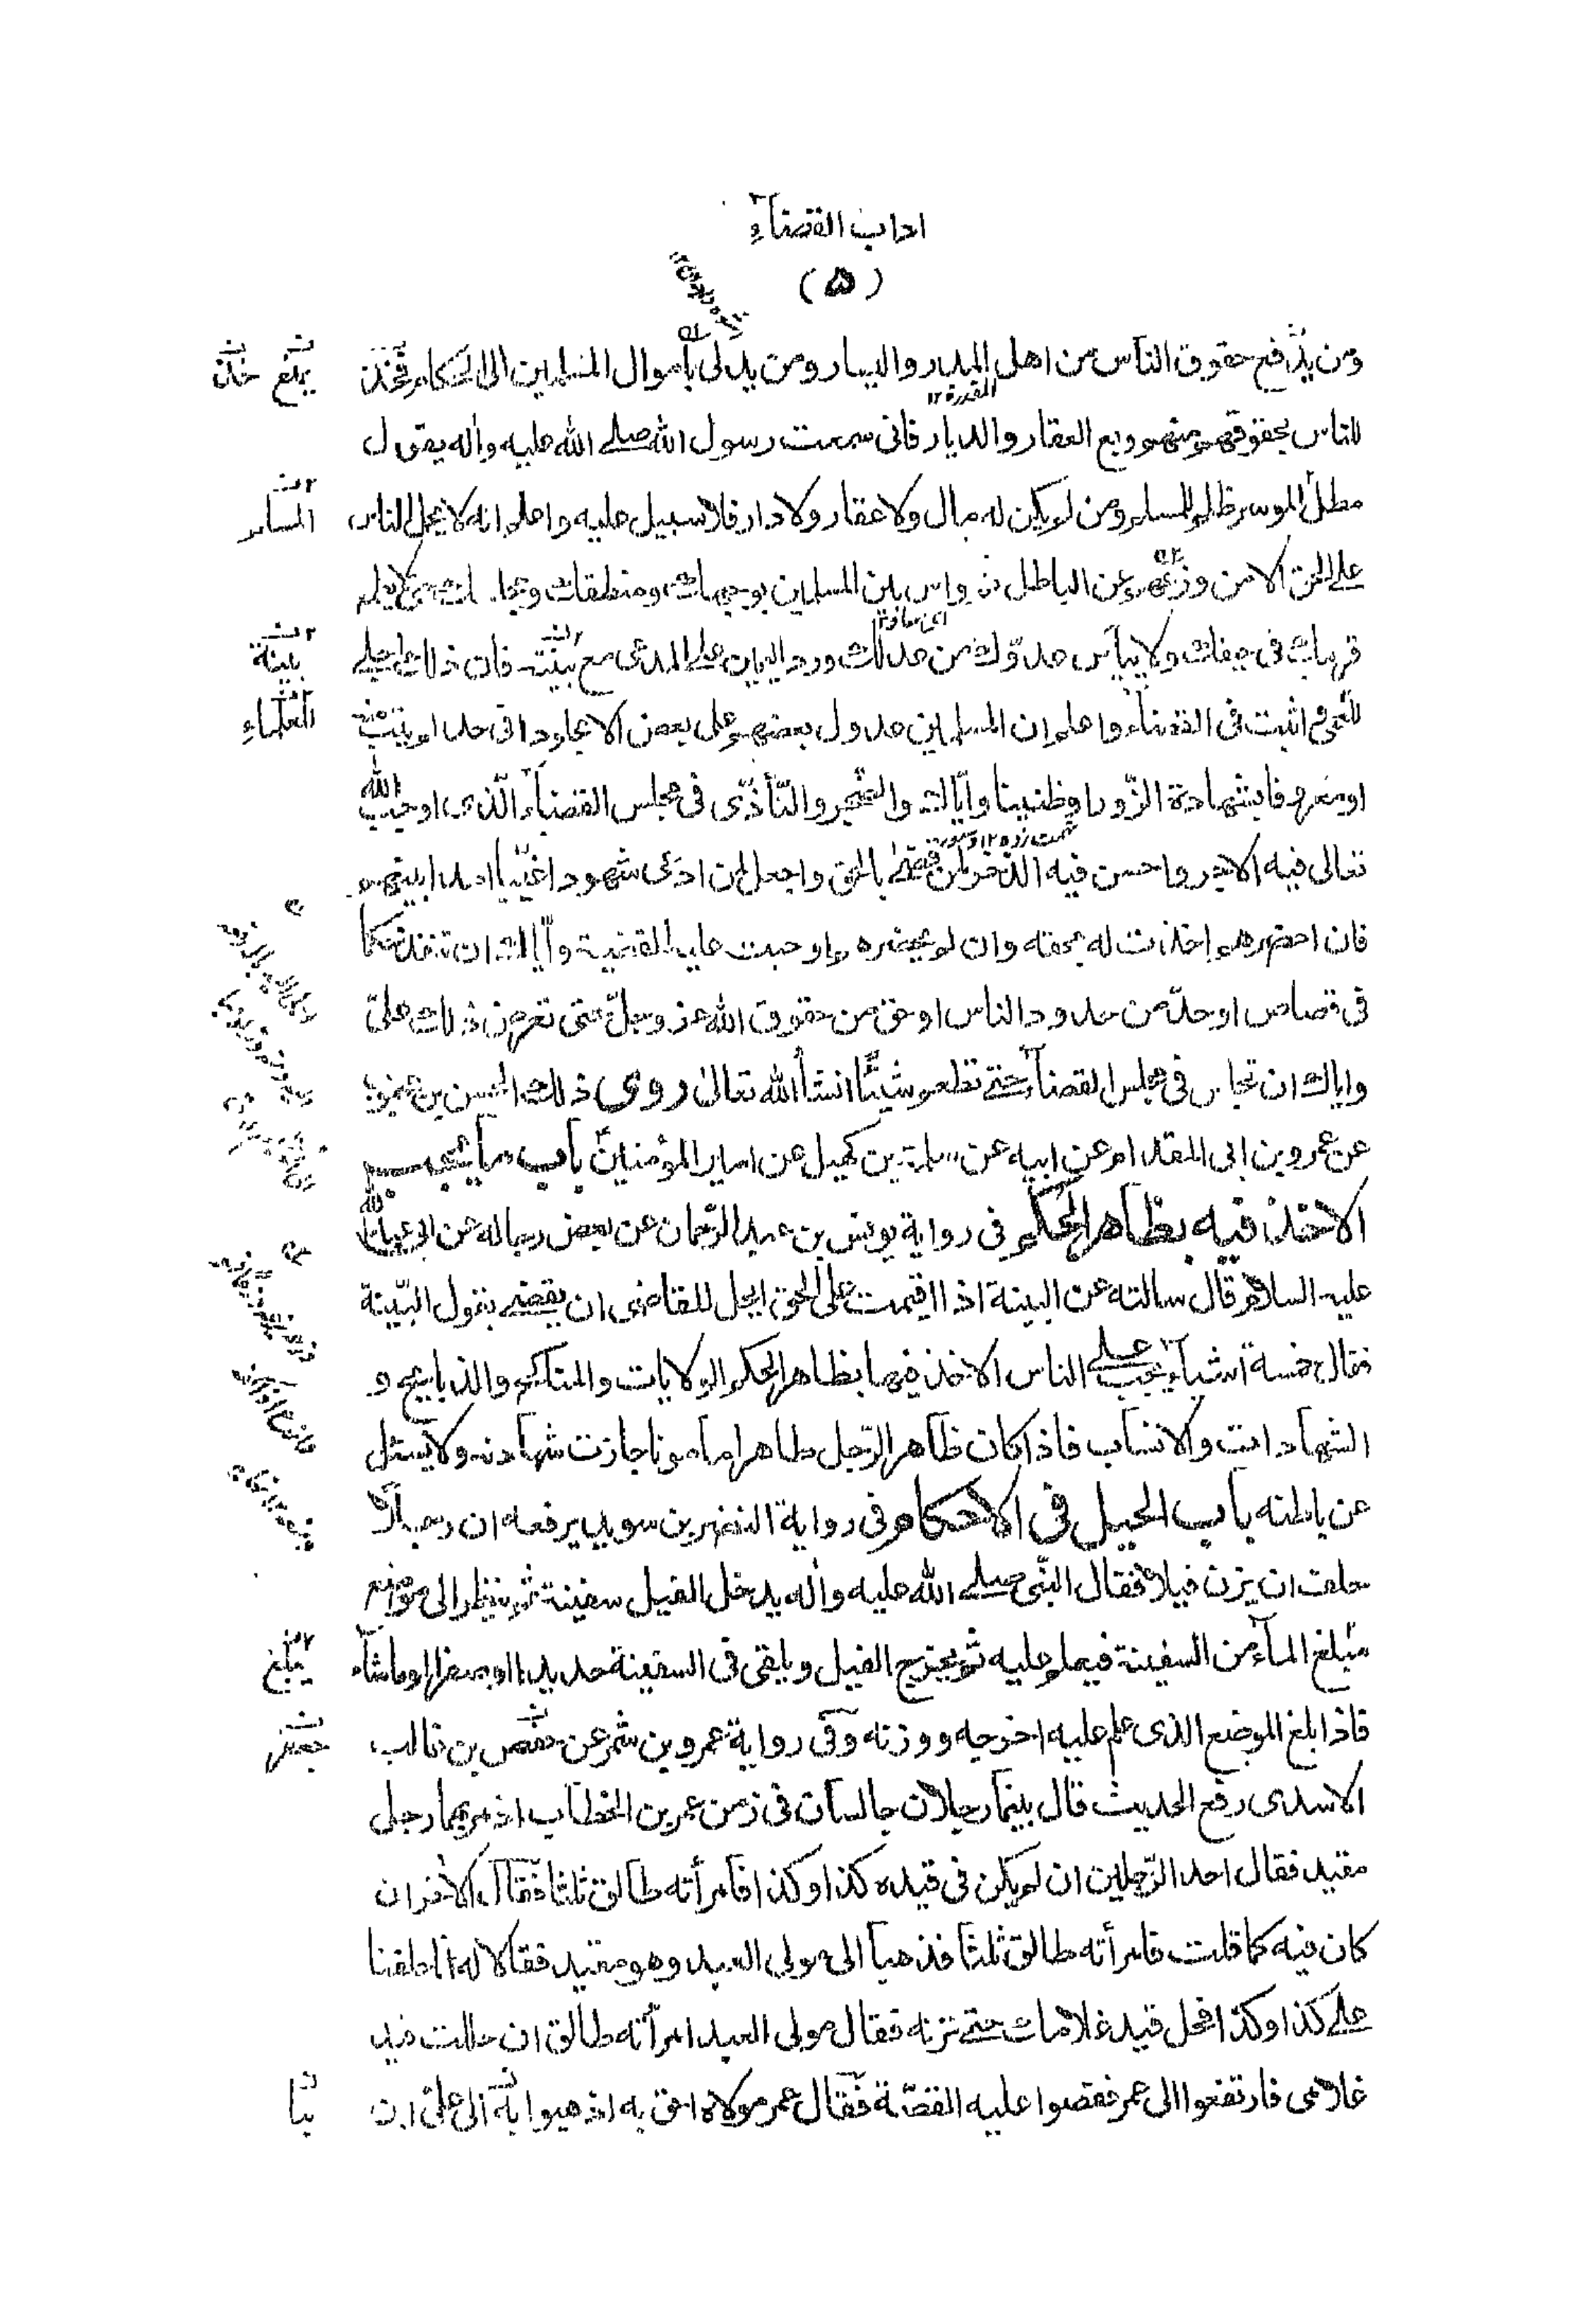 اداب القضآء
(۵)
ومن يدفع حقوق الناس من اهل المدر واليسار ومن يدلى بأموال المسلمين الى الحكام فخذ
المقدرة ١٢
للناس بحقوقهم منهم وبع العقار والديار فانى سمعت رسول الله صلے الله عليه واله يقول
مطل الموسر ظلم للمسلم ومن لم يكن له مال ولا عقار ولا دار فلا سبيل عليه واعلم انه لا يحمل الناس
علے الحق الا من وزعهم عن الباطل ثم واس بين المسلمين بوجهك ومنطقك حتى لا يطمع
قريبك فى حيفك ولا ييأس عدوك من عدلك ورد اليمين علے المدعى مع بينته فان ذلك اجلے
للعمى واثبت فى القضاء واعلم ان المسلمين عدول بعضهم على بعض الا مجلودا فى حد لم يتب منه
او معروفا بشهادة الزور او ظنينا واياك والضجر والتأذى فى مجلس القضاء الذى اوجب الله
تعالى فيه الاجر واحسن فيه الذخر لمن قضے بالحق واجعل لمن ادعى شهودا غيبا امدا بينهم
فان احضرهم اخذت له بحقه وان لم يحضرهم اوجبت عليه القضية واياك ان تنفذ حكما
فى قصاص او حد من حدود الناس او حق من حقوق الله عز وجل حتى تعرض ذلك على
واياك ان تجلس فى مجلس القضاء حتے تطعم شيئا انشأ الله تعالى روى ذلك الحسن بن محبوب
عن عمرو بن ابى المقدام عن ابيه عن سلمة بن كهيل عن امير المؤمنين باب ما يجب
الاخذ فيه بظاهر الحكم فى رواية يونس بن عبد الرحمان عن بعض رجاله عن ابى عبد الله
عليه السلام قال سالته عن البينة اذا اقيمت على الحق ايحل للقاضى ان يقضے بقول البينة
فقال خمسة اشياء يجب علے الناس الاخذ فيها بظاهر الحكم الولايات والمناكح والذبايح و
الشهادات والانساب فاذا كان ظاهر الرجل طاهرا مامونا جازت شهادته ولا يسئل
عن باطنه باب الحيل فى الاحكام فى رواية النضر بن سويد يرفعه ان رجلا
حلف ان يزن فيلا فقال النبى صلے الله عليه واله يدخل الفيل سفينة ثم ينظر الى موضع
مبلغ الماء من السفينة فيعلم عليه ثم يخرج الفيل ويلقى فى السفينة حديدا او صفرا او ماشاء
فاذا بلغ الموضع الذى علم عليه اخرجه ووزنه وفى رواية عمرو بن شمر عن حفص بن غالب
الاسدى رفع الحديث قال بينما رجلان جالسان فى زمن عمر بن الخطاب اذ مر بهما رجل
مقيد فقال احد الرجلين ان لم يكن فى قيده كذا وكذا فامرأته طالق ثلثا فقال الاخر ان
كان فيه كما قلت فامرأته طالق ثلثا فذهبا الى مولى العبد وهو مقيد فقالا له انا حلفنا
علے كذا وكذا فحل قيد غلامك حتے نزنه فقال مولى العبد امرأته طالق ان حللت قيد
غلامى فارتفعوا الى عمر فقصوا عليه القصة فقال عمر مولاه احق به اذهبوا به الى على ابن
المسلم
بينة
يبلغ
جعفر
بنا